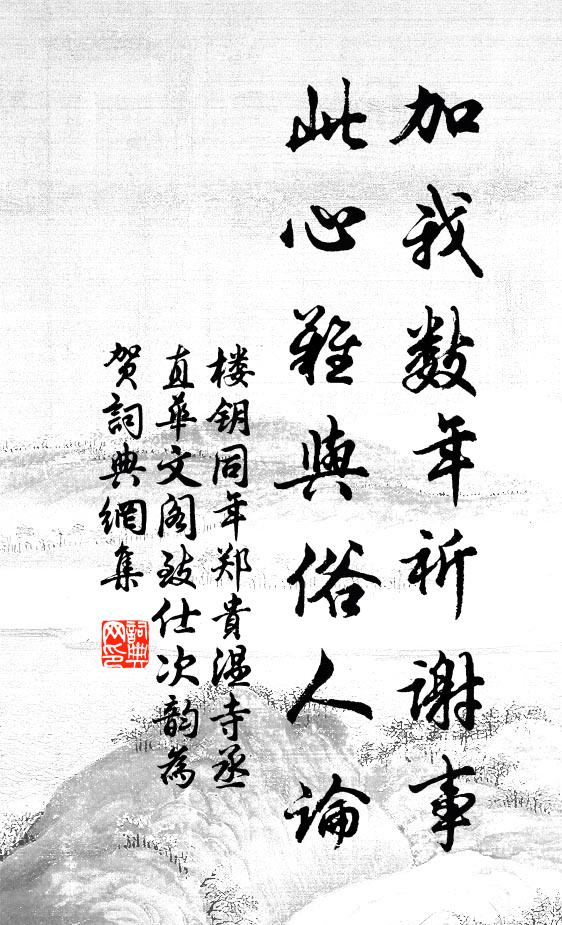 加我数年祈谢事
此心難與俗人論
楼钥同年郑貴溫寺丞
直華文阁致仕次韵為
贺詞典網集
詞典网印